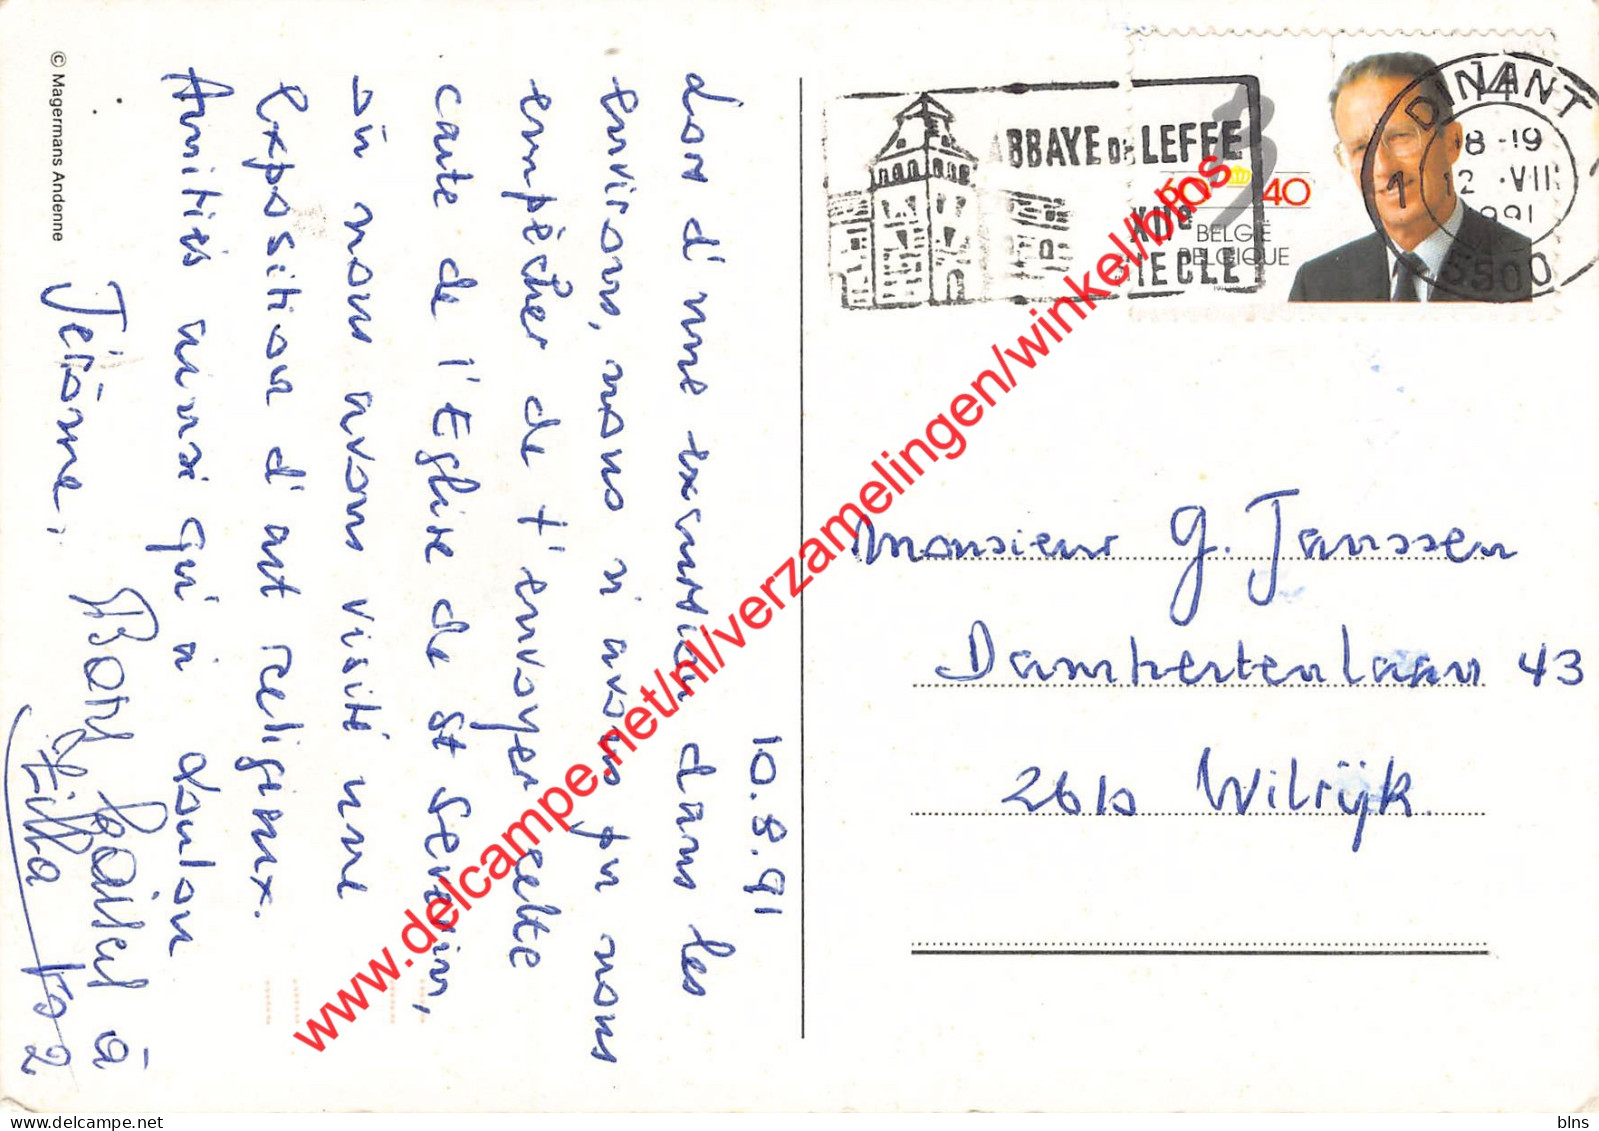 © Magermans Andenne
10.8.91
Lors d'une excursion dans les
environs, nous n'avons pu nous
empêcher de t'envoyer cette
carte de l'Eglise de St Severin,
où nous avons visité une
exposition d'art religieux.
Amitiés ainsi qu'à
Jérôme.
à
vs 2
BBAYE DE LEFFE
XIIe
IECLE
60
40
BELGIË
BELGIQUE
DINANT
1
14
18-19
12 VIII
1991
5500
Monsieur G. Janssen
43
2610 Wilrijk.
www.delcampe.net/nl/verzamelingen/winkel/blns
blns